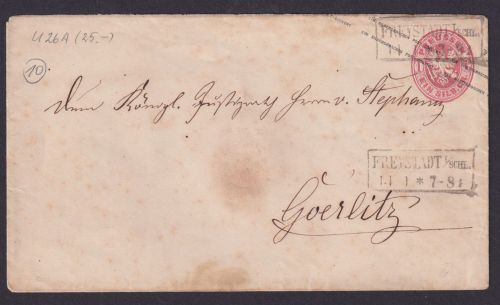 U 26 A (25.-)
10
FREYSTADT I/SCHL.
PREUSSEN
EIN SILB
Dem Königl. Justizrath Herrn v. Stephany
FREYSTADT I/SCHL.
11 1 * 7-8
Goerlitz